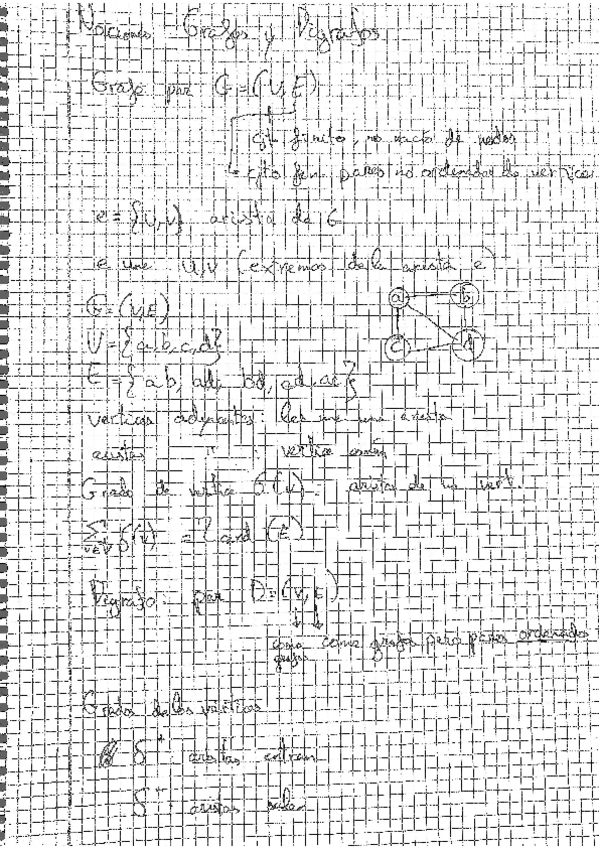 Nociones Grafos y Digrafos
Grafo par G = (V, E)
cjto finito, no vacío de nodos
cjto fin. pares no ordenados de vertices
e = {u, v} arista de G
e une u, v (extremos de la arista e)
a b
G = (V, E)
c d
V = {a, b, c, d}
E = {ab, ad, bd, cd, ac}
vertices adyacentes: les une una arista
aristas " : vertice común
Grado de vertice δ(v): aristas de un vert.
∑ v∈V δ(v) = 2 card (E)
Digrafo: par D = (V, E)
como grafos como grafos pero pares ordenados
Grados de los vertices
δ+ aristas entran
δ-: aristas salen